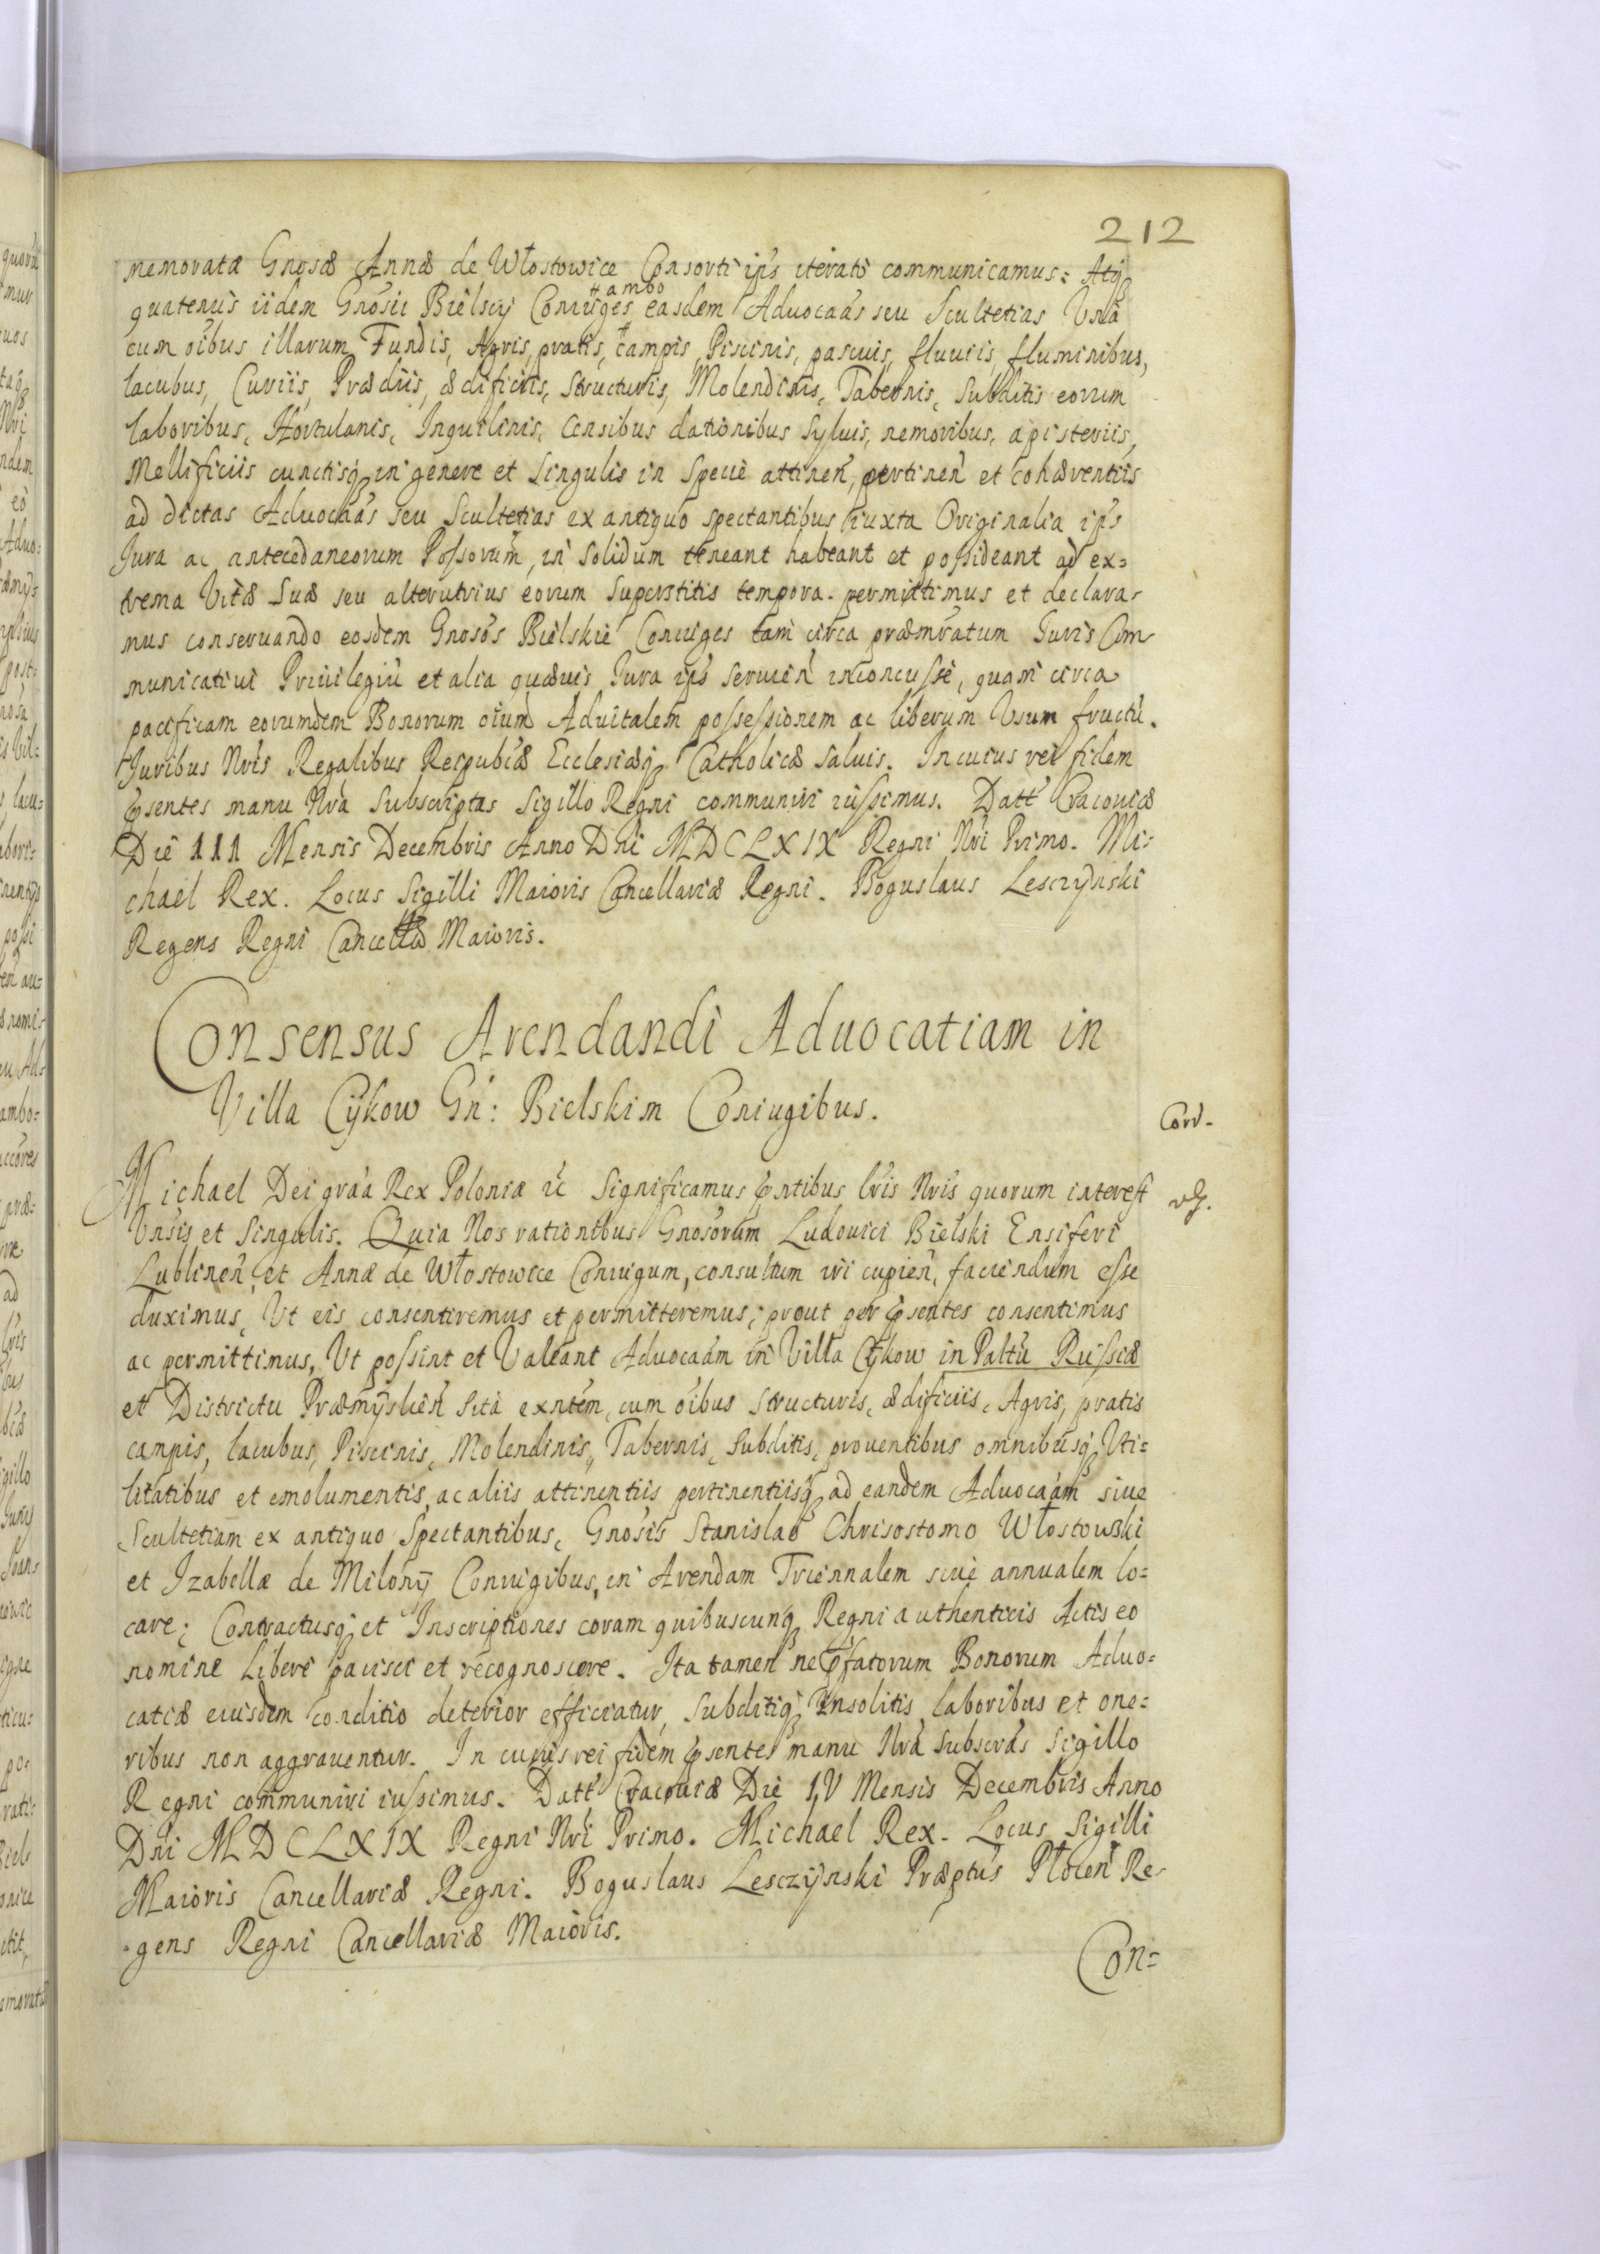 212
memoratæ Gnosæ Annæ de Włostowice Consorti ips iterato communicamus: Atq
ambo
quatenus iidem Gnosii Bielscy Coniuges easdem Aduocaas seu Scultetias Vna
cum oibus illarum Fundis, Agris, pratis, campis, Piscinis, pascuis, fluuiis, fluminibus,
lacubus, Curiis, Prædiis, ædificiis, structuris, Molendinis, Tabernis, subditis eorum
laboribus, Hortulanis, Inquilinis, Censibus dationibus syluis, nemoribus, apisteriis,
Mellificiis cunctisq in genere et singulis in specie attinen, pertinen et cohærentiis
ad dictas Aduocaas seu Scultetias ex antiquo spectantibus iuxta Originalia ips
Jura ac antecedaneorum Possorum, in solidum teneant habeant et possideant ad ex=
trema Vitæ suæ seu alterutrius eorum superstitis tempora. permittimus et declara-
mus conseruando eosdem Gnosos Bielskie Coniuges tam circa præmratum Juris Com-
municatiui Priuilegiu et alia quæuis Jura ips seruien inconcusse, quam circa
pacificam eorumdem Bonorum oium Aduitalem possessionem ac liberum Vsum fructu.
Juribus Nris Regalibus Reipubcæ Ecclesiæq Catholicæ saluis. In cuius rei fidem
psentes manu Nra subscriptas Sigillo Regni communiri iussimus. Datt Cracouiæ
Die III Mensis Decembris Anno Dni MDCLXIX Regni Nri Primo. Mi=
chael Rex. Locus Sigilli Maioris Cancellariæ Regni. Boguslaus Lesczynski
Regens Regni Cancellæ Maioris.
Consensus Arendandi Aduocatiam in
Villa Cykow Gn: Bielskim Coniugibus.
Corr.
Michael Dei graa Rex Poloniæ &c Significamus pntibus lris Nris quorum interest
Vnsis et Singulis. Quia Nos rationibus Gnosorum Ludouici Bielski Ensiferi
Lublinen et Annæ de Włostowice Coniugum, consultum iri cupien, faciendum esse
duximus, Vt eis consentiremus et permitteremus; prout per psentes consentimus
ac permittimus, Vt possint et Valeant Aduocaam in Villa Cykow in Paltu Russiæ
et Districtu Præmyslien sita exntem, cum oibus structuris, ædificiis, Agris, pratis
campis, lacubus, Piscinis, Molendinis, Tabernis, subditis, prouentibus omnibusq Vti=
litatibus et emolumentis, ac aliis attinentiis pertinentiisq ad eandem Aduocaam siue
Scultetiam ex antiquo Spectantibus, Gnosis Stanislao Chrisostomo Włostowski
et Izabellæ de Milony Coniugibus, in Arendam Triennalem siue annualem lo=
care; Contractusq et Inscriptiones coram quibuscunq Regni authenticis Actis eo
nomine libere pacisci et recognoscere. Ita tamen ne pfatorum Bonorum Aduo=
catiæ eiusdem conditio deterior efficiatur, subditiq insolitis laboribus et one=
ribus non aggrauentur. In cuius rei fidem psentes manu Nra subscras Sigillo
Regni communiri iussimus. Datt Cracouiæ Die IV Mensis Decembris Anno
Dni MDCLXIX Regni Nri Primo. Michael Rex. Locus Sigilli
Maioris Cancellariæ Regni. Boguslaus Lesczynski Præptus Płocen Re-
gens Regni Cancellariæ Maioris.
Con=